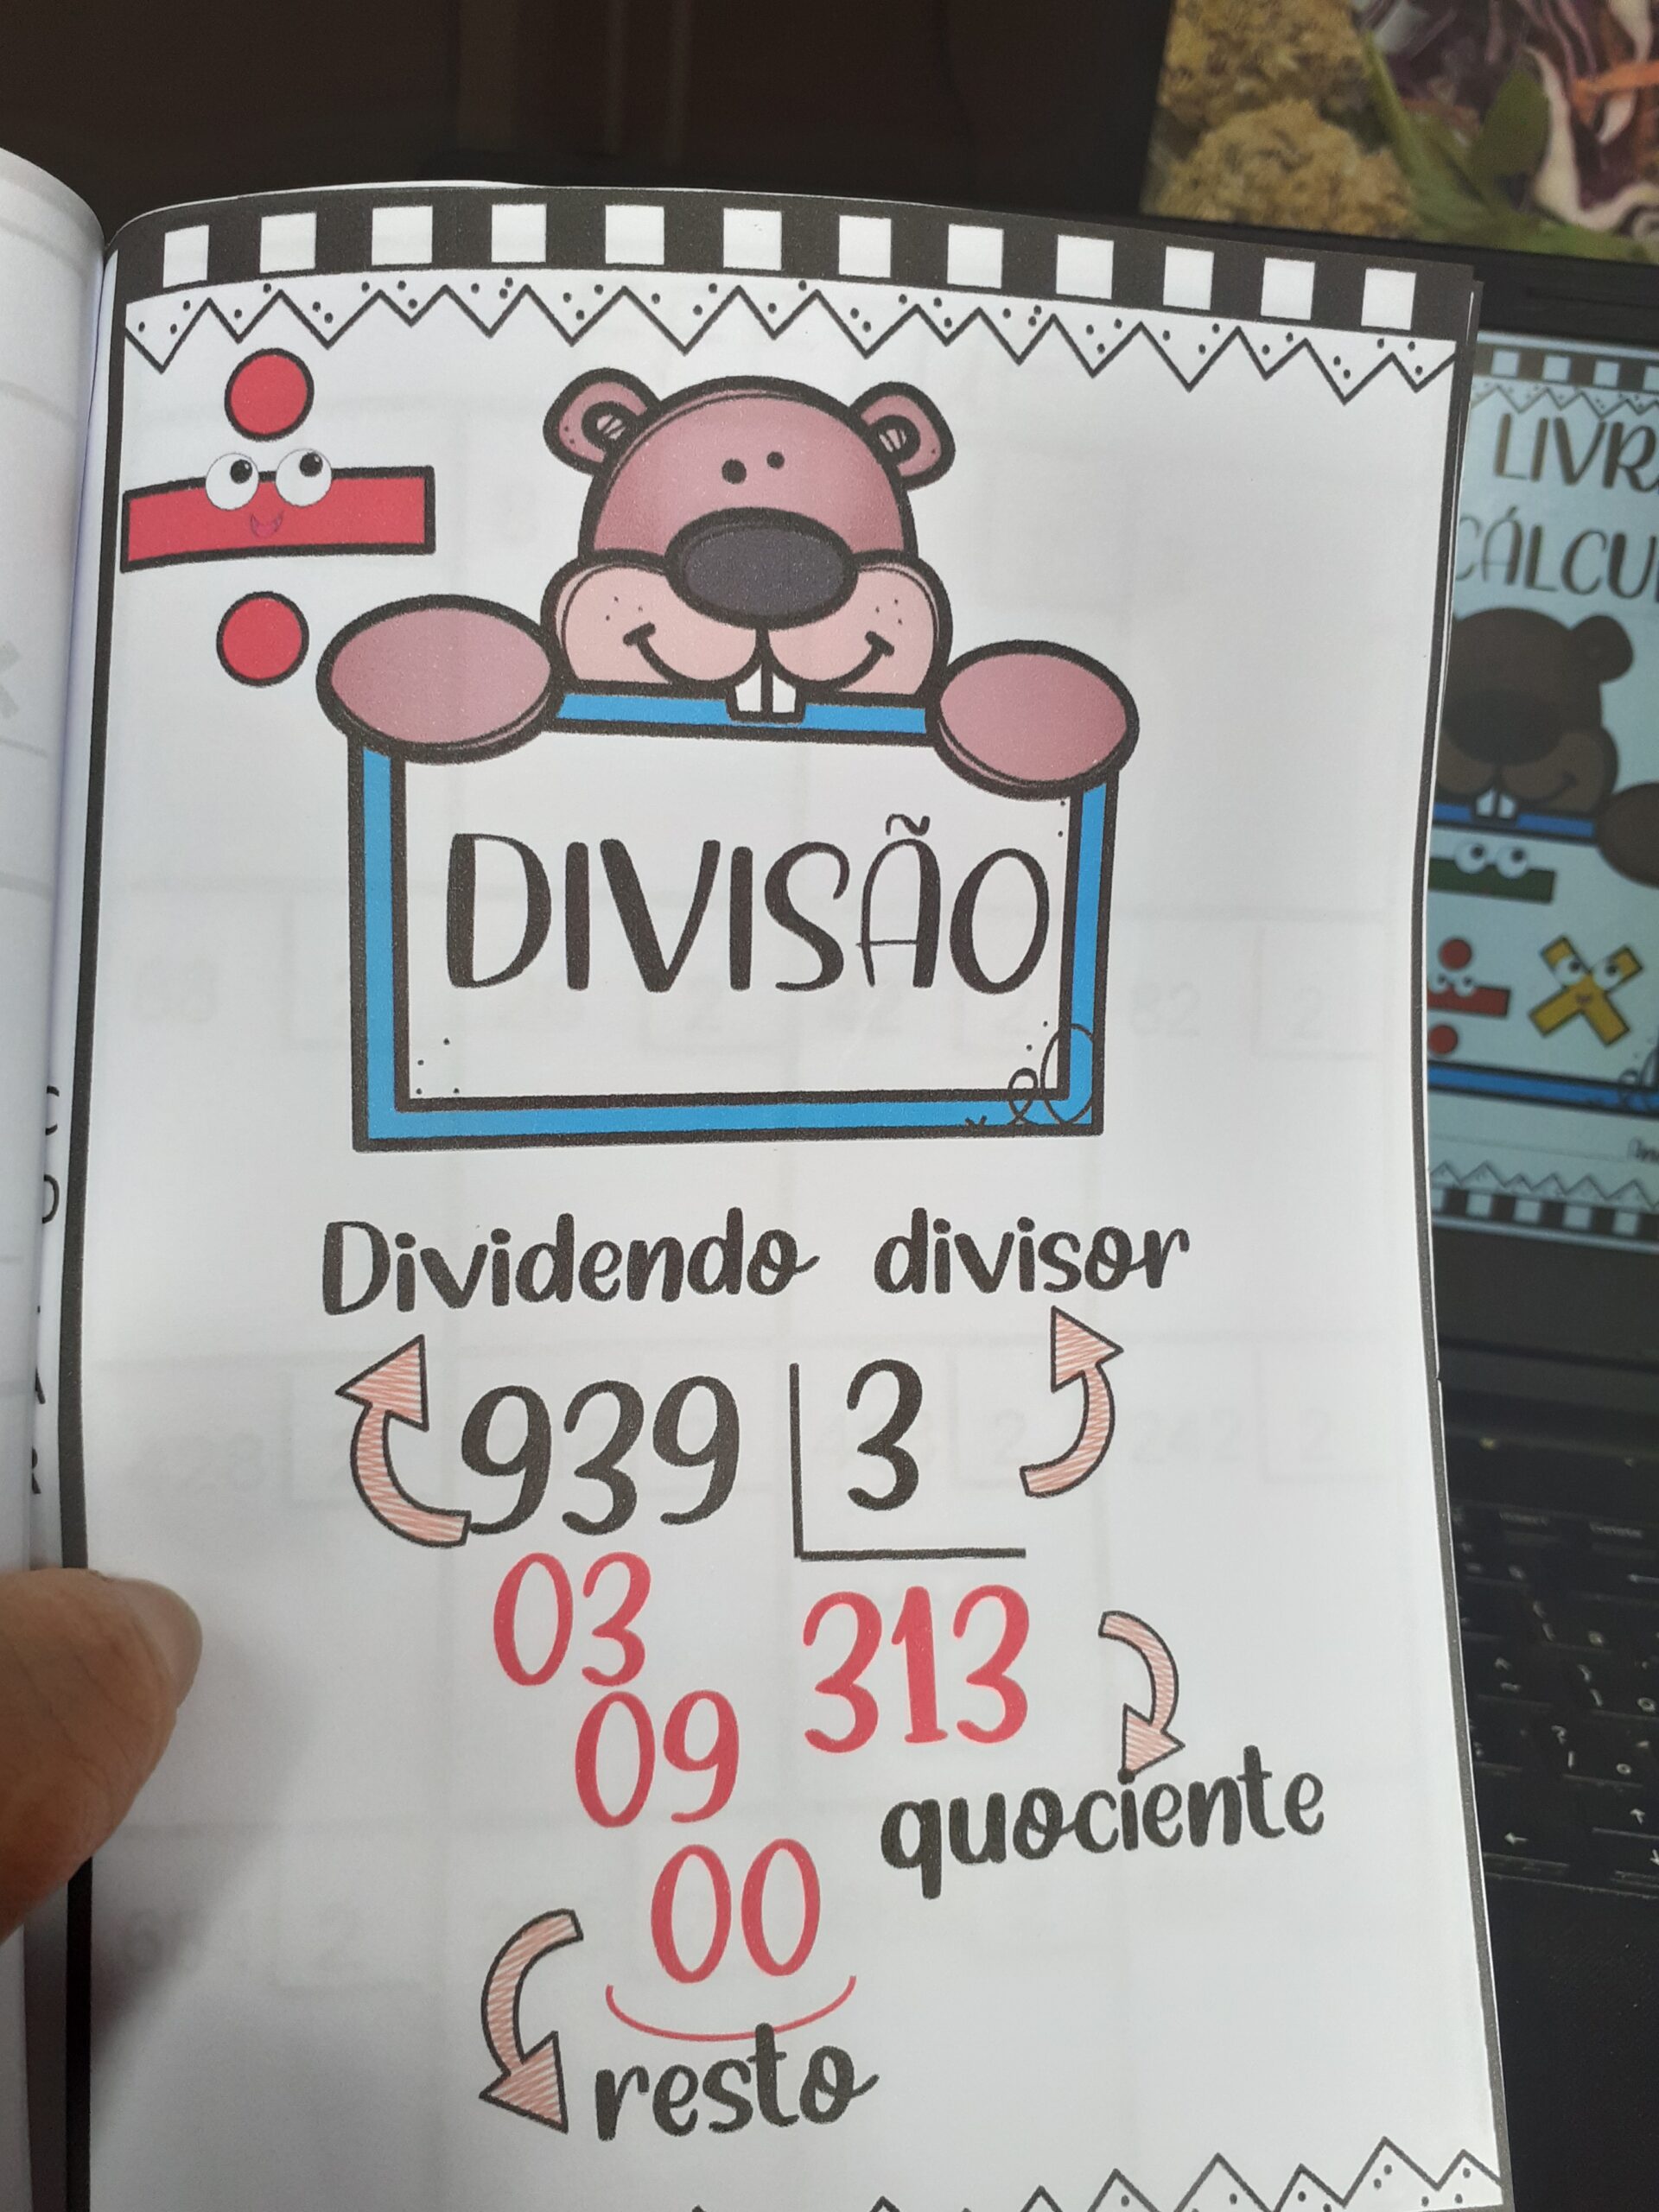 DIVISÃO
Dividendo divisor
939 3
03 313
09
quociente
00
resto
LIVR
CÁLCU